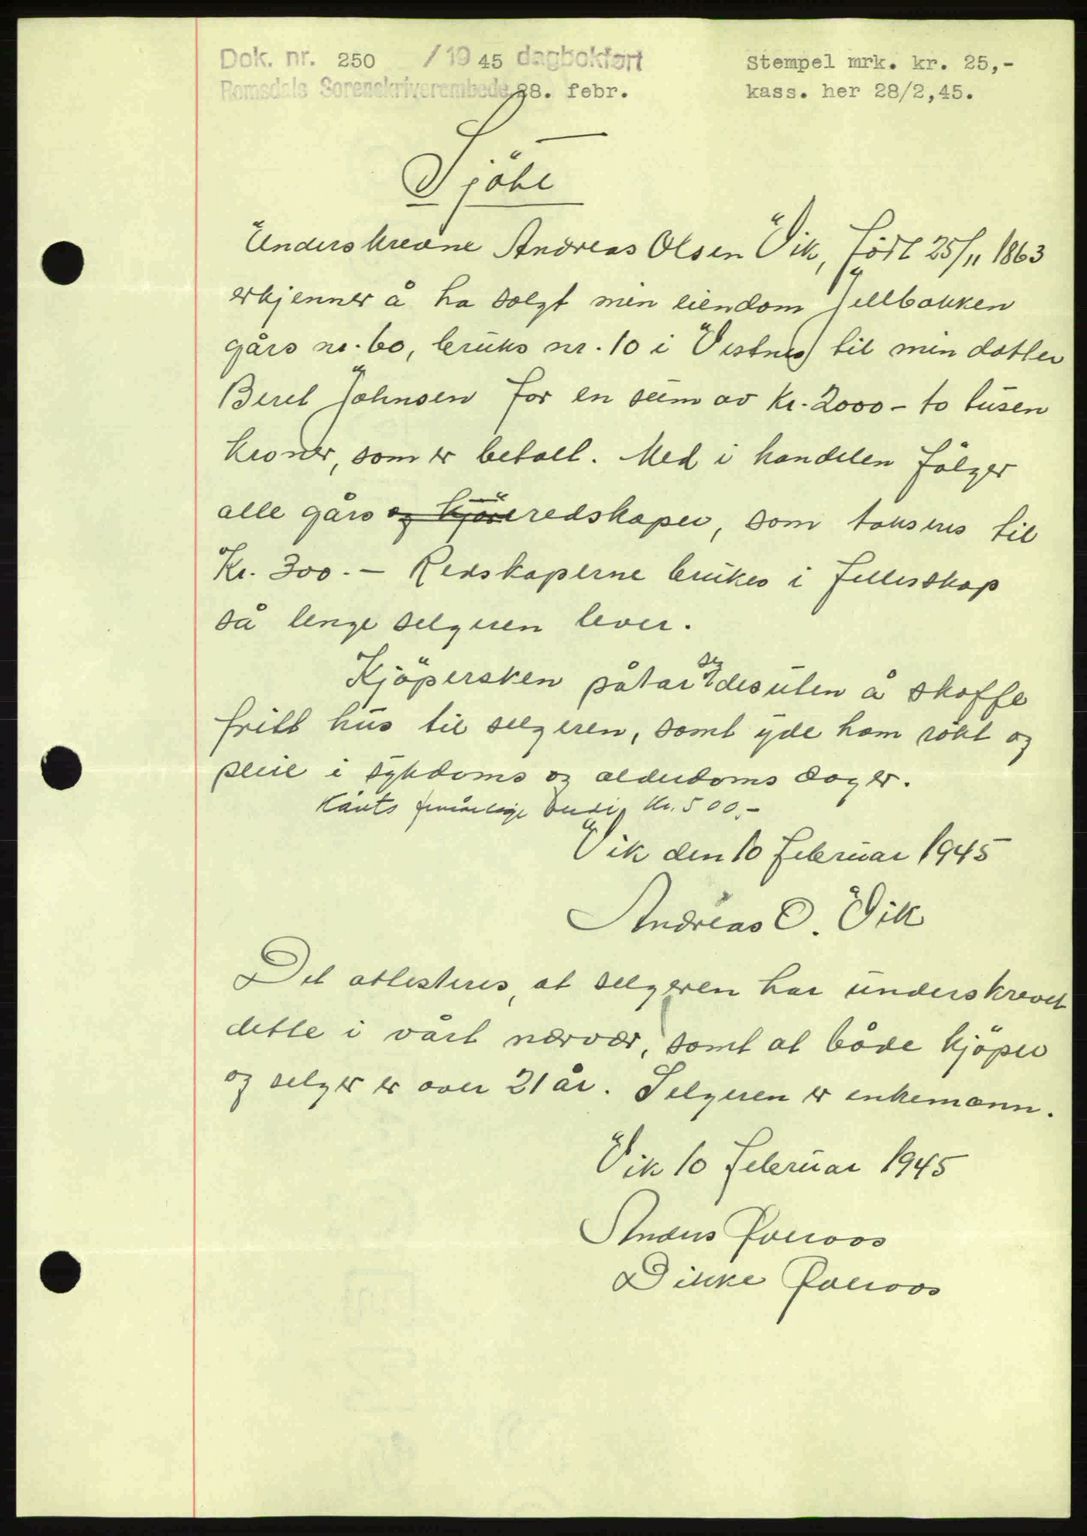 Dok. nr. 250 / 19 45 dagbokført
Romsdals Sorenskriverembede 28. febr.
Stempel mrk. kr. 25,-
kass. her 28/2,45.
Sjöte
Underskrevne Andreas Olsen Vik, född 25/11 1863
erkjenner å ha solgt min eiendom Jellbakken
gårs nr. 60, bruks nr. 10 i Vestnes til min datter
Beret Johnsen for en sum av Kr. 2000 - to tusen
kroner, som er betalt. Med i handelen fölger
alle gårs og kjöreredskaper, som takseres til
Kr. 300. - Redskaperne brukes i fellesskap
så lenge selgeren lever.
Kjöpersken påtar seg desuten å skaffe
fritt hus til selgeren, samt yde ham rökt og
pleie i sykdoms og alderdoms dager.
Kårets femårlige verdi Kr. 500,-
Vik den 10 februar 1945
Andreas O. Vik
Det attesteres, at selgeren har underskrevet
dette i vårt nærvær, samt at både kjöper
og selger er over 21 år. Selgeren er enkemann.
Vik 10 februar 1945
Anders Øveraas
Dikke Øveraas